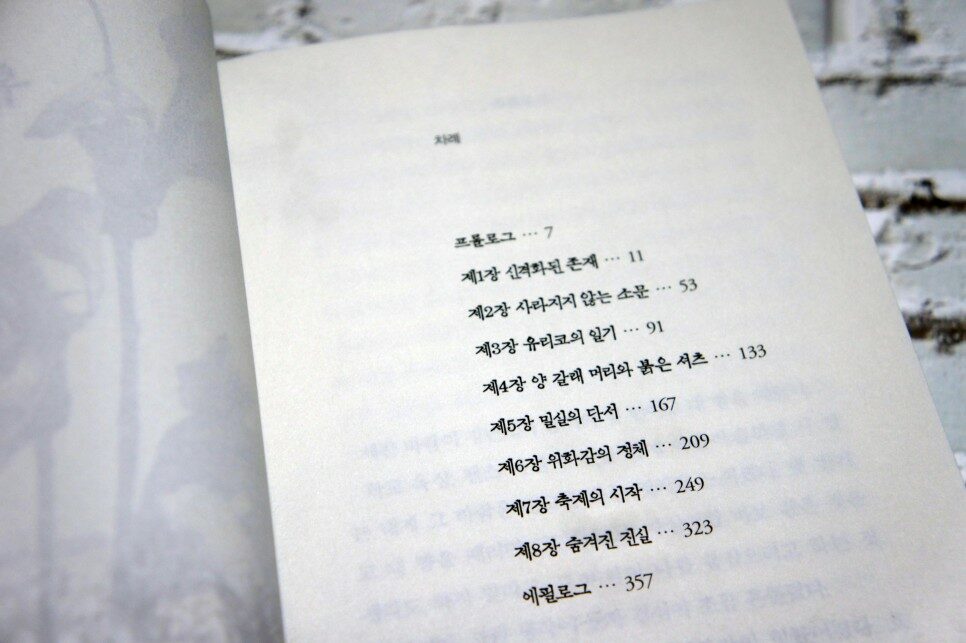 차례
프롤로그 … 7
제1장 신격화된 존재 … 11
제2장 사라지지 않는 소문 … 53
제3장 유리코의 일기 … 91
제4장 양 갈래 머리와 붉은 셔츠 … 133
제5장 밀실의 단서 … 167
제6장 위화감의 정체 … 209
제7장 축제의 시작 … 249
제8장 숨겨진 진실 … 323
에필로그 … 357